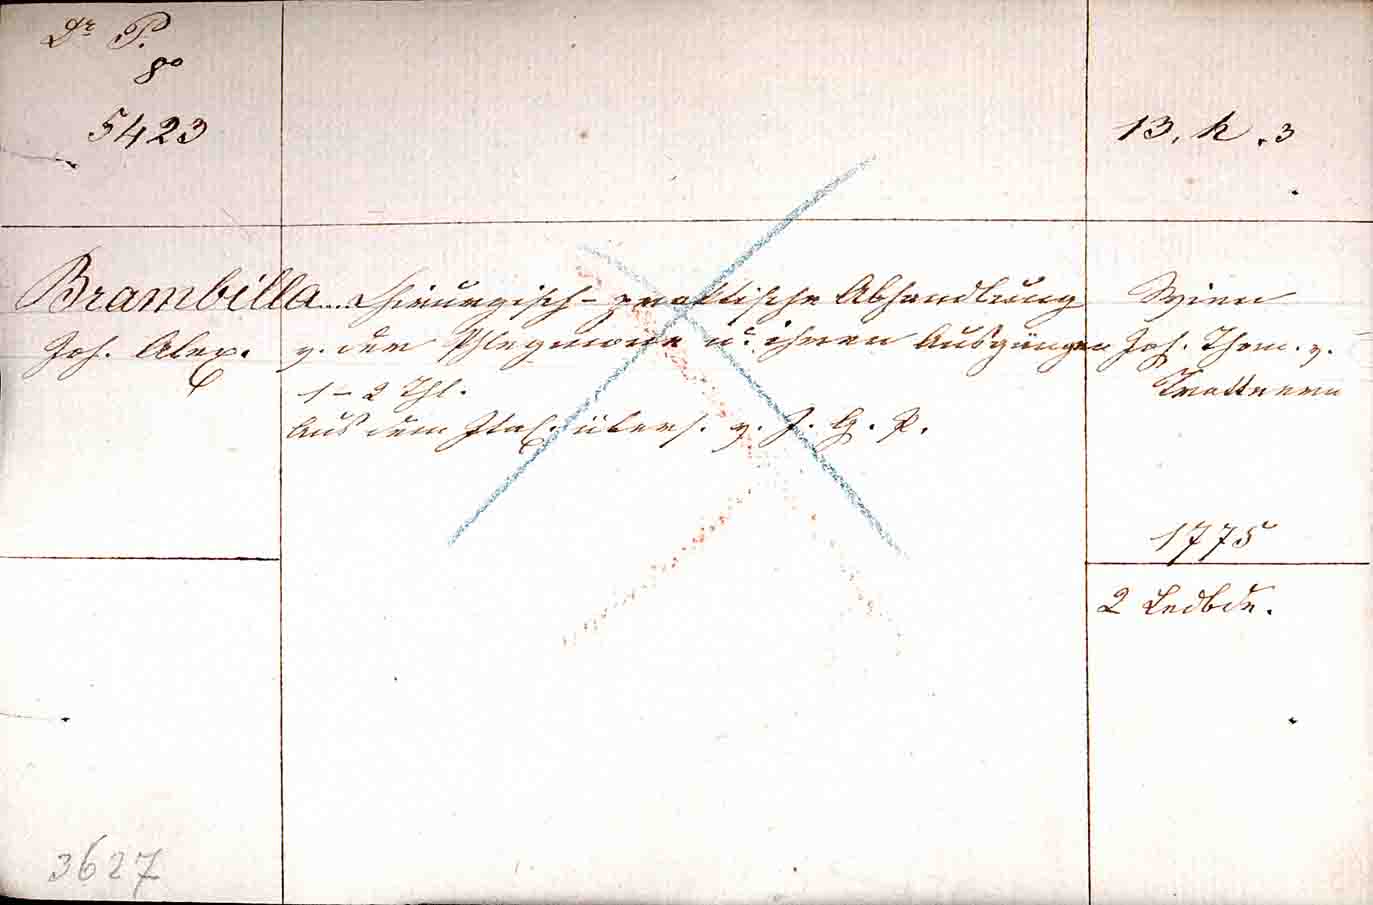 Dr P.
8°
5423
13. h. 3
Brambilla
Joh. Alex.
Chirurgisch-praktische Abhandlung
v. der Phlegmone u. ihren Ausgängen
1-2 Thl.
Aus dem Ital. übers. v. J. G. P.
Wien
Joh. Thom. v.
Trattnern
1775
2 Ledbde.
3627